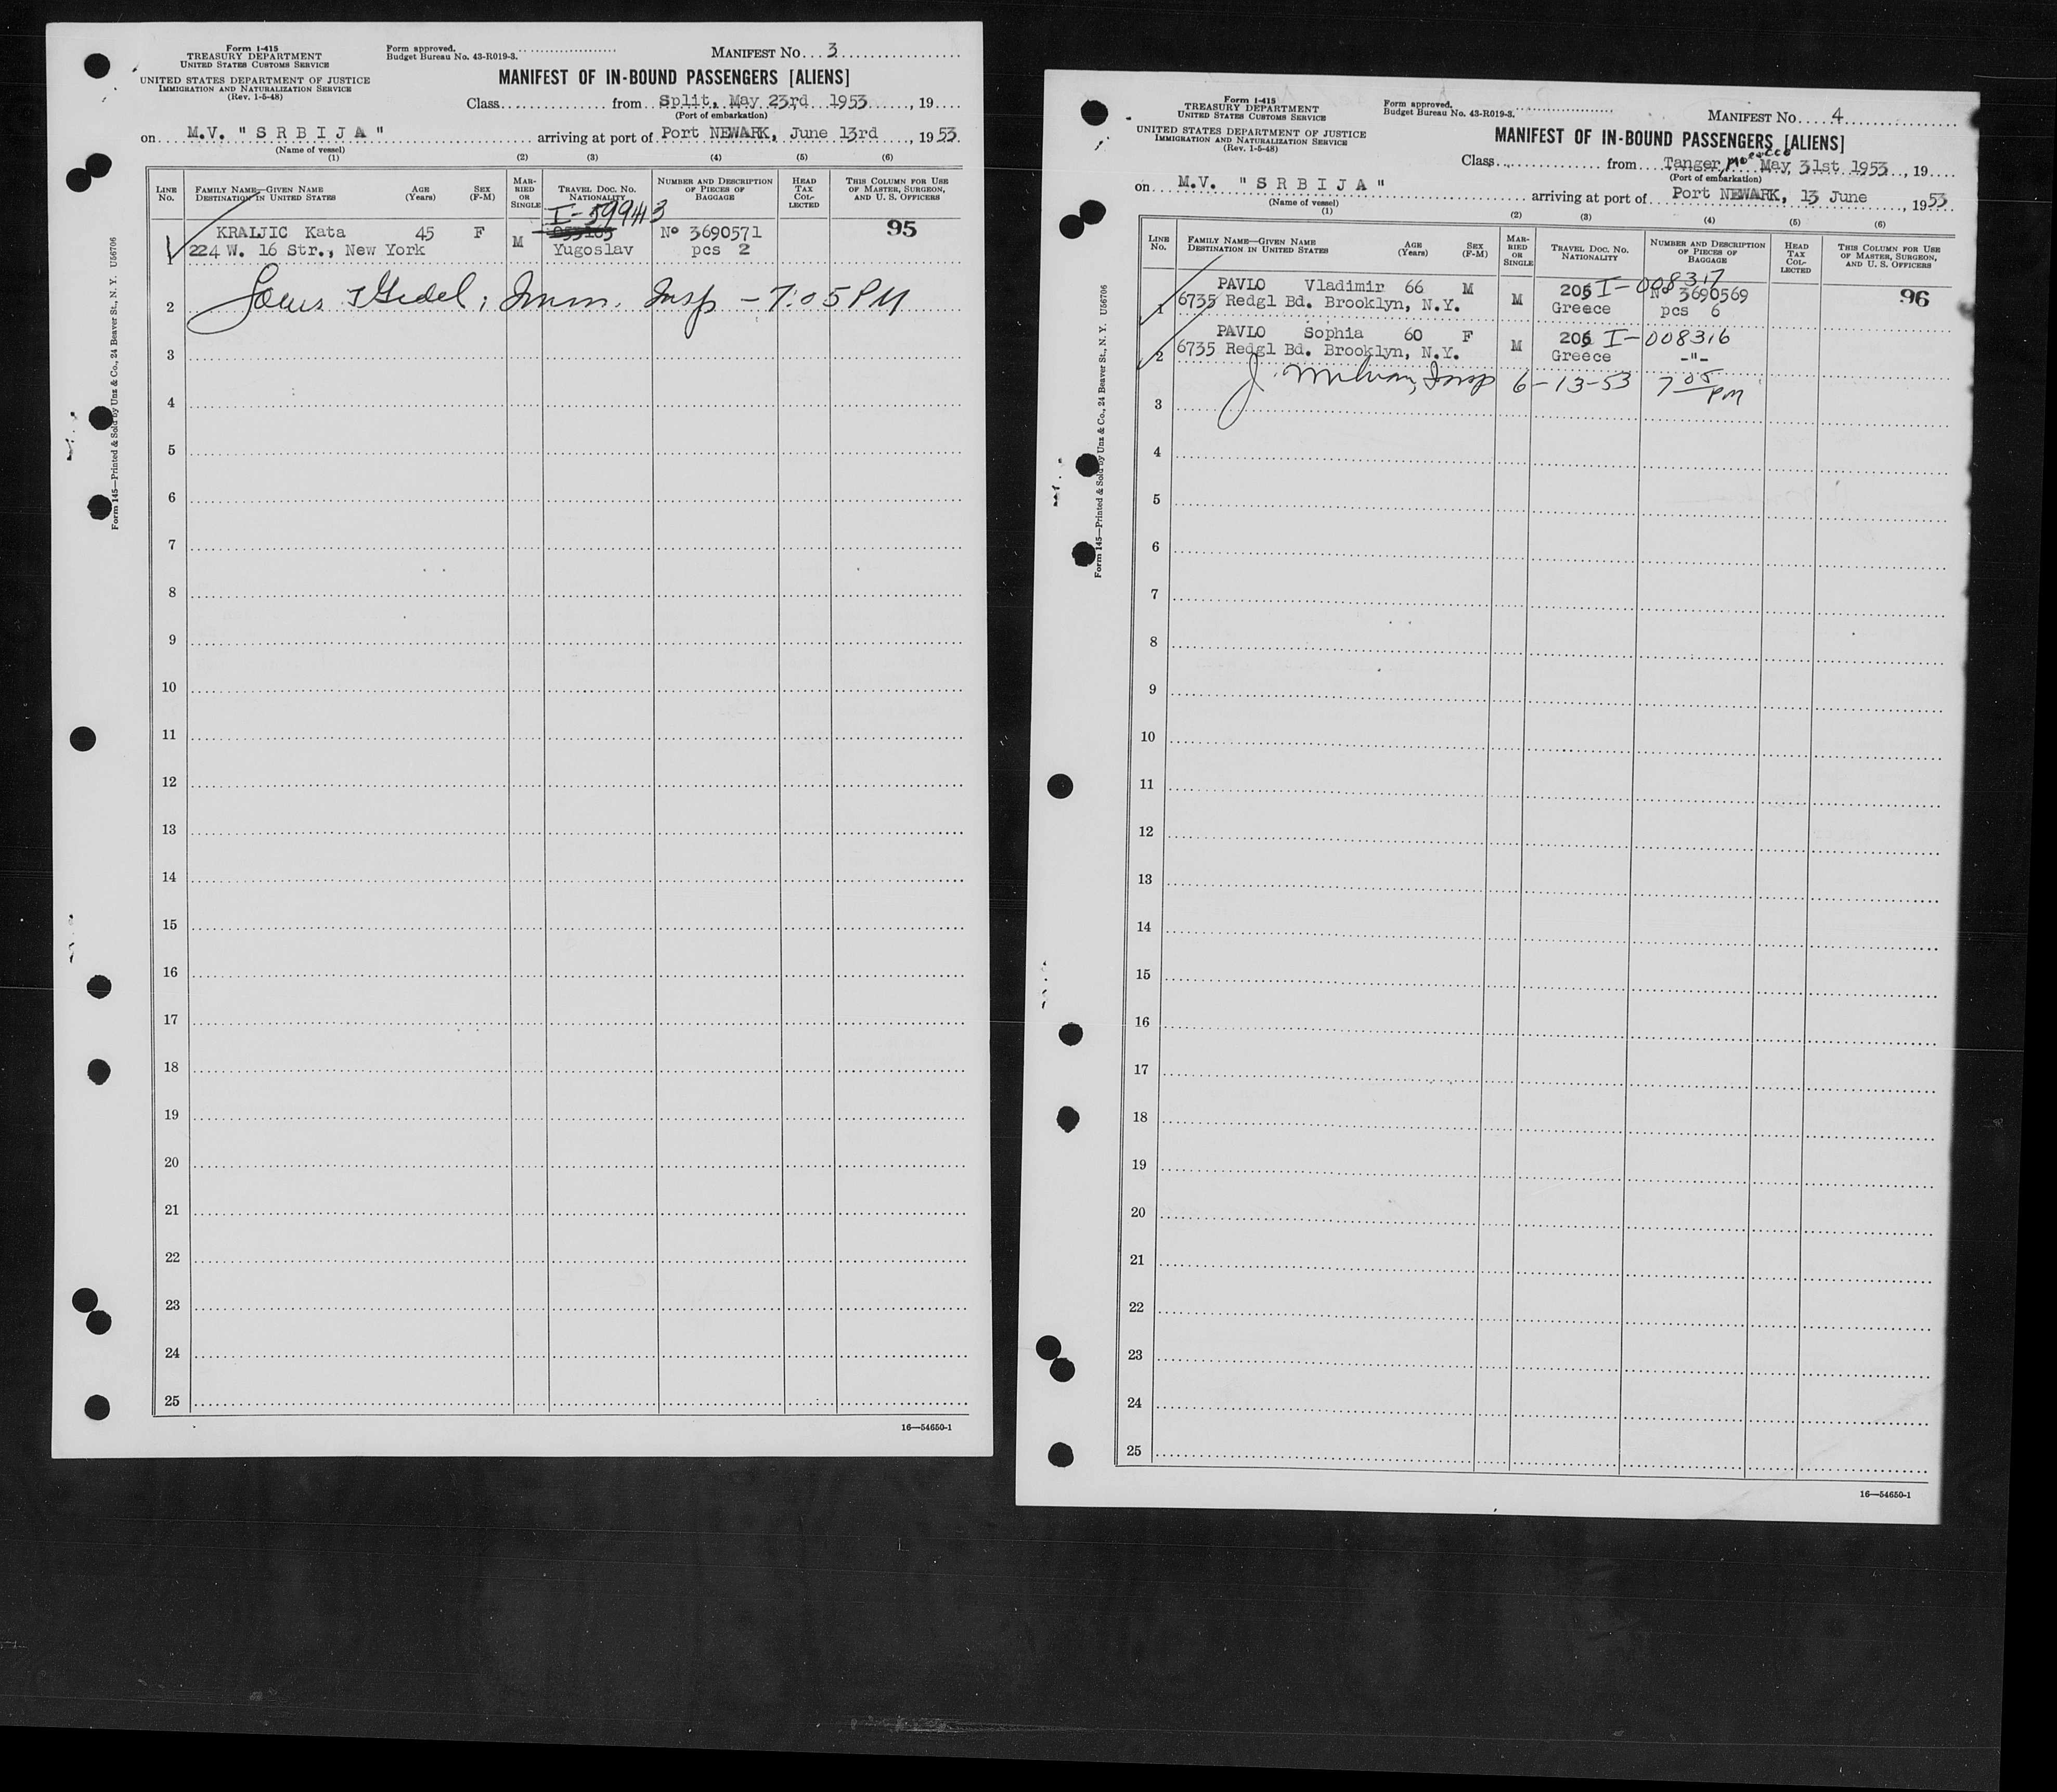 Form I-415
TREASURY DEPARTMENT
UNITED STATES CUSTOMS SERVICE
UNITED STATES DEPARTMENT OF JUSTICE
IMMIGRATION AND NATURALIZATION SERVICE
(Rev. 1-5-48)
Form approved.
Budget Bureau No. 43-R019-3.
MANIFEST NO. 3
MANIFEST OF IN-BOUND PASSENGERS [ALIENS]
Class from Split, May 23rd 1953, 19
(Port of embarkation)
on M.V. "S R B I J A" arriving at port of Port NEWARK, June 13rd 1953.
(Name of vessel)
(1) (2) (3) (4) (5) (6)
LINE NO. FAMILY NAME—GIVEN NAME DESTINATION IN UNITED STATES AGE (Years) SEX (F-M) MARRIED OR SINGLE TRAVEL DOC. NO. NATIONALITY NUMBER AND DESCRIPTION OF PIECES OF BAGGAGE HEAD TAX COLLECTED THIS COLUMN FOR USE OF MASTER, SURGEON, AND U. S. OFFICERS
I-599413
1 KRALJIC Kata 45 F M Nº 3690571 95
224 W. 16 Str., New York Yugoslav pcs 2
2 Imm. Insp - 7:05 PM
3
4
5
6
7
8
9
10
11
12
13
14
15
16
17
18
19
20
21
22
23
24
25
16—54650-1
Form 145—Printed & Sold by Unz & Co., 24 Beaver St., N. Y. U56706
Form I-415
TREASURY DEPARTMENT
UNITED STATES CUSTOMS SERVICE
UNITED STATES DEPARTMENT OF JUSTICE
IMMIGRATION AND NATURALIZATION SERVICE
(Rev. 1-5-48)
Form approved.
Budget Bureau No. 43-R019-3.
MANIFEST NO. 4
MANIFEST OF IN-BOUND PASSENGERS [ALIENS]
Class from Tanger, Morocco May, 31st 1953, 19
(Port of embarkation)
on M.V. "S R B I J A" arriving at port of Port NEWARK, 13 June, 1953
(Name of vessel)
(1) (2) (3) (4) (5) (6)
LINE NO. FAMILY NAME—GIVEN NAME DESTINATION IN UNITED STATES AGE (Years) SEX (F-M) MARRIED OR SINGLE TRAVEL DOC. NO. NATIONALITY NUMBER AND DESCRIPTION OF PIECES OF BAGGAGE HEAD TAX COLLECTED THIS COLUMN FOR USE OF MASTER, SURGEON, AND U. S. OFFICERS
1 PAVLO Vladimir 66 M M 205 I-008317 Nº 3690569 96
6735 Redgl Bd. Brooklyn, N.Y. Greece pcs 6
2 PAVLO Sophia 60 F M 206 I-008316
6735 Redgl Bd. Brooklyn, N.Y. Greece -"-
J. Insp 6-13-53 7 05 PM
3
4
5
6
7
8
9
10
11
12
13
14
15
16
17
18
19
20
21
22
23
24
25
16—54650-1
Form 145—Printed & Sold by Unz & Co., 24 Beaver St., N. Y. U56706